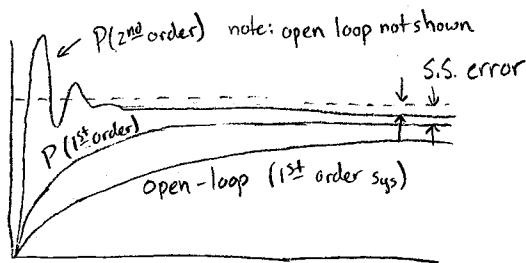 P(2nd order) note: open loop not shown
S.S. error
P(1st order)
open-loop (1st order sys)